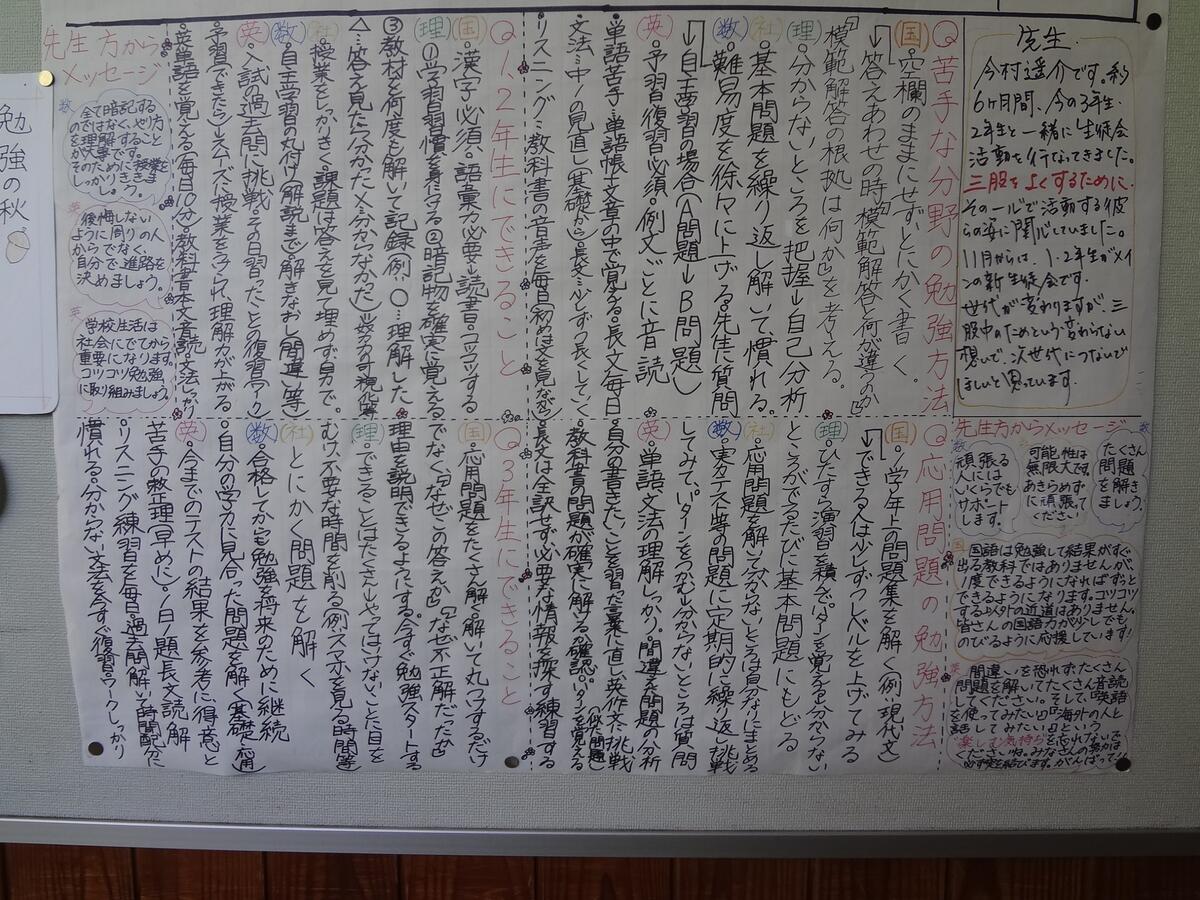 先生
今村遥介です。約
6ヶ月間、今の3年生、
2年生と一緒に生徒会
活動を行なってきました。
三股をよくするために、
その一心で活動する彼
らの姿に関心していました。
11月からは、1・2年生がメイ
ンの新生徒会です。
世代が変わりますが、三
股中のためという変わらない
想いで、次世代につないで
ほしいと思っています。
Q苦手な分野の勉強方法
国・空欄のままにせずとにかく書く。
↓答えあわせの時「模範解答と何が違うのか」
「模範解答の根拠は何か」を考える。
理・分からないところを把握→自己分析
社・基本問題を繰り返し解いて、慣れる。
数・難易度を徐々に上げる。先生に質問
↓自主学習の場合(A問題→B問題)
英・予習復習必須・例文ごとに音読
・単語苦手…単語帳、文章の中で覚える。長文毎日
・文法…中1の見直し(基礎から)長文…少しずつ長くしていく
・リスニング…教科書の音声を毎日(初めは文を見ながら)
Q1、2年生にできること
国・漢字必須。語彙力必要→読書。コツコツする
理・①学習習慣を身につける②暗記物を確実に覚える
③教材を何度も解いて記録(例…○…理解した
△…答え見たら分かった×…分からなかった)→努力の可視化
社・授業をしっかりきく。課題は答えを見て埋めず自分で。
数・自主学習の丸付け、解説まで。解きなおし(間違い)等
英・入試の過去問に挑戦。その日習ったことの復習(ワーク)
予習できたらスムーズに授業をうけれ、理解力が上がる
・英単語を覚える(毎日10分)・教科書本文音読・文法しっかり
先生方からメッセージ
数
全て暗記する
のではなく、やり方
を理解すること
が大事です。
そのために授業を
しっかりききま
しょう。
英
後悔しない
ように周りの人
からでなく、
自分で進路を
決めましょう。
英
学校生活は
社会にでてから
重要になります。
コツコツ勉強
に取り組みましょう。
先生方からメッセージ
たくさん
問題
を解き
ましょう。
可能性は
無限大です。
あきらめず
に頑張って
ください
数
頑張る
人には
いくらでも
サポート
します。
国
国語は勉強して結果がすぐ
出る教科ではありませんが、
1度できるようになればずっと
できるようになります。コツコツ
する以外の近道はありません。
皆さんの国語力が少しでも
のびるように応援しています!
英
間違いを恐れずたくさん
問題を解いてたくさん音読
してください。そして、「英語
を使ってみたい」「海外の人と
話してみたい」という
楽しむ気持ちを忘れないで
くださいね。みなさんの努力は
必ず実を結びます。がんばって!!
Q応用問題の勉強方法
国・学年上の問題集を解く(例・現代文)
↓できる人は少しずつレベルを上げてみる
理・ひたすら演習を積んでパターンを覚える。分からない
ところがでるたびに基本問題にもどる
社・応用問題を解いて分からないところは自分なりにまとめる
数・実力テスト等の問題に定期的に繰り返し挑戦
してみて、パターンをつかむ→分からないところは質問
英・単語、文法の理解しっかり。間違えた問題の分析
・自分の書きたいことを習った言葉に直し、英作文に挑戦
・教科書の問題が確実に解けるか確認。パターンを覚える
・長文は全訳せず必要な情報を探す練習する
Q3年生にできること
国・応用問題をたくさん解く。解いて丸つけするだけ
でなく、「なぜこの答えか」「なぜ不正解だったか」
理由を説明できるようにする。今すぐ勉強スタートする
理・できることはたくさん→やってはいけないことに目を
むけ、不要な時間を削る(例スマホを見る時間等)
社・とにかく問題を解く
数・合格してからも勉強を将来のために継続
・自分の学力に見合った問題を解く(基礎・応用)
英・今までのテストの結果を参考に得意と
苦手の整理(早めに)・1日1題長文読解
・リスニング練習を毎日・過去問解いて時間配分に
慣れる。分からない文法を今すぐ復習。ワークしっかり
勉強の秋